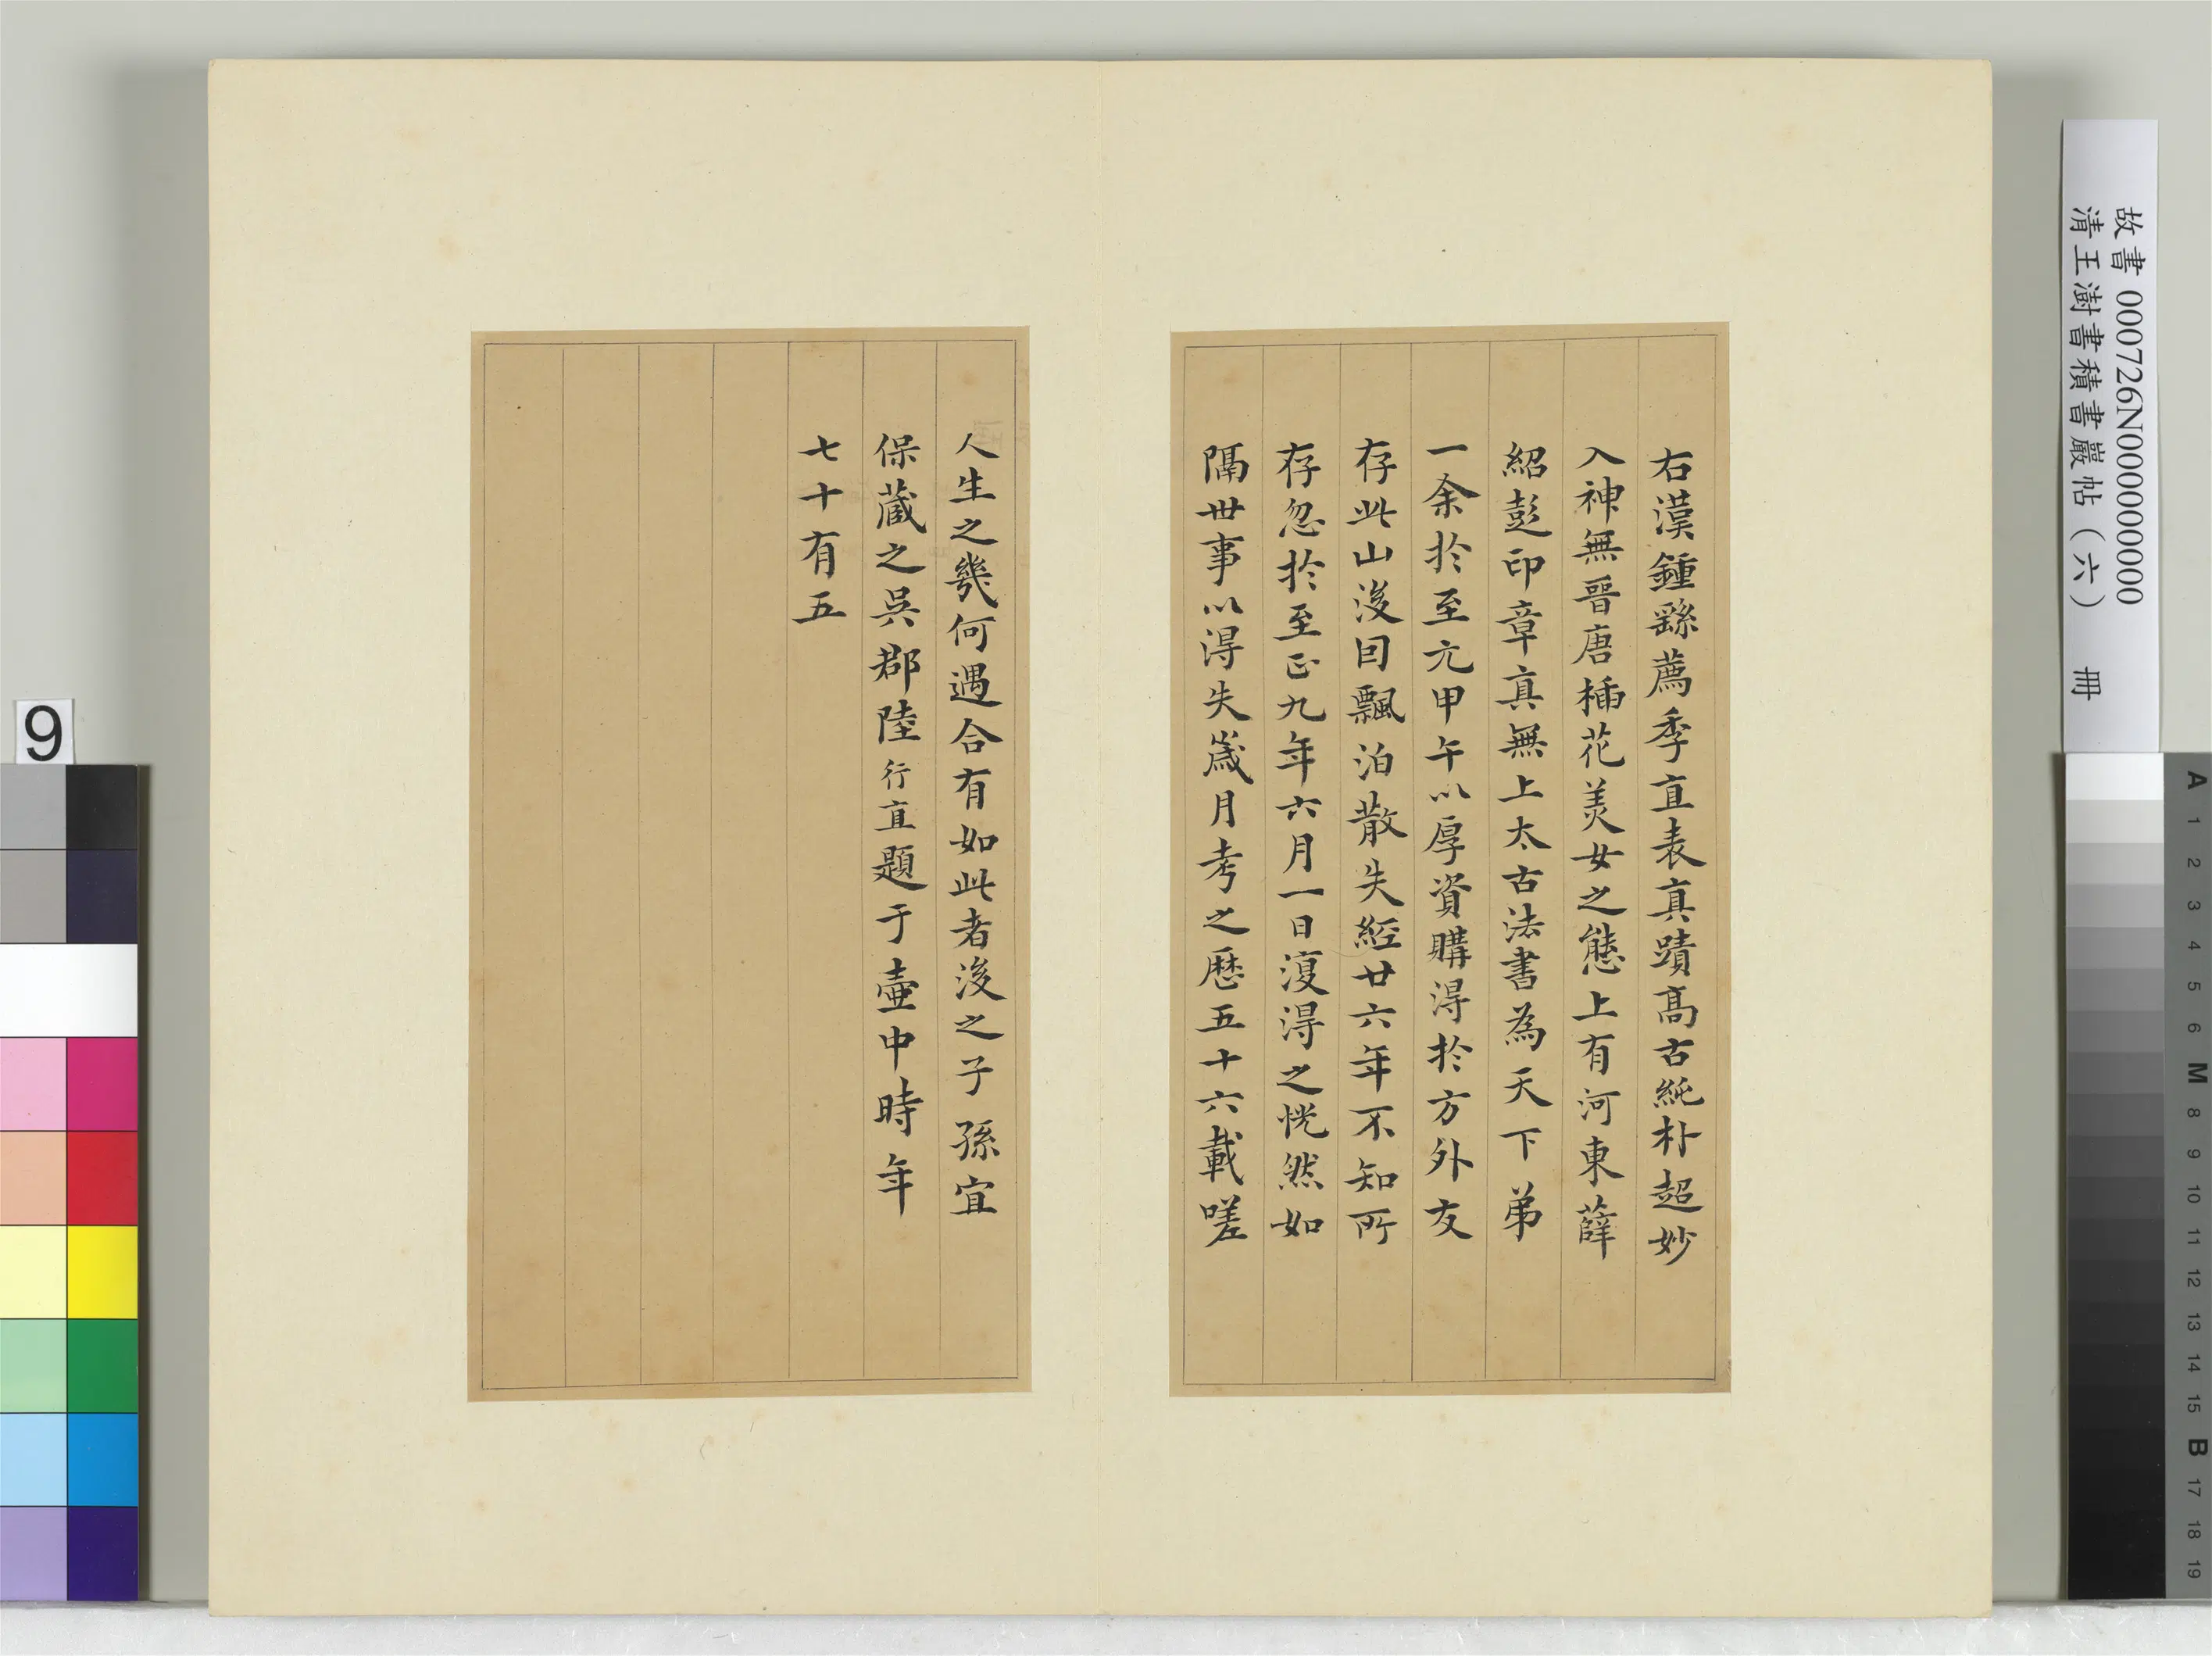 右漢鍾繇薦季直表真蹟高古純朴超妙
入神無晉唐插花美女之態上有河東薛
紹彭印章真無上太古法書為天下弟
一余於至元甲午以厚資購得於方外友
存此山後因飄泊散失經廿六年不知所
存忽於至正九年六月一日復得之恍然如
隔世事以得失歲月考之歷五十六載嗟
人生之幾何遇合有如此者後之子孫宜
保藏之吳郡陸行直題于壺中時年
七十有五
故書 000726N000000000
清王澍書積書巖帖(六) 冊
9
A 1 2 3 4 5 6 M 8 9 10 11 12 13 14 15 B 17 18 19